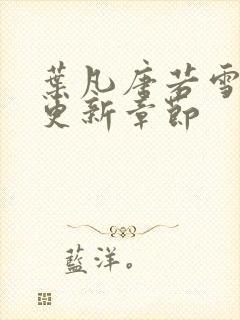 葉凡唐若雪
更新章節
藍洋。